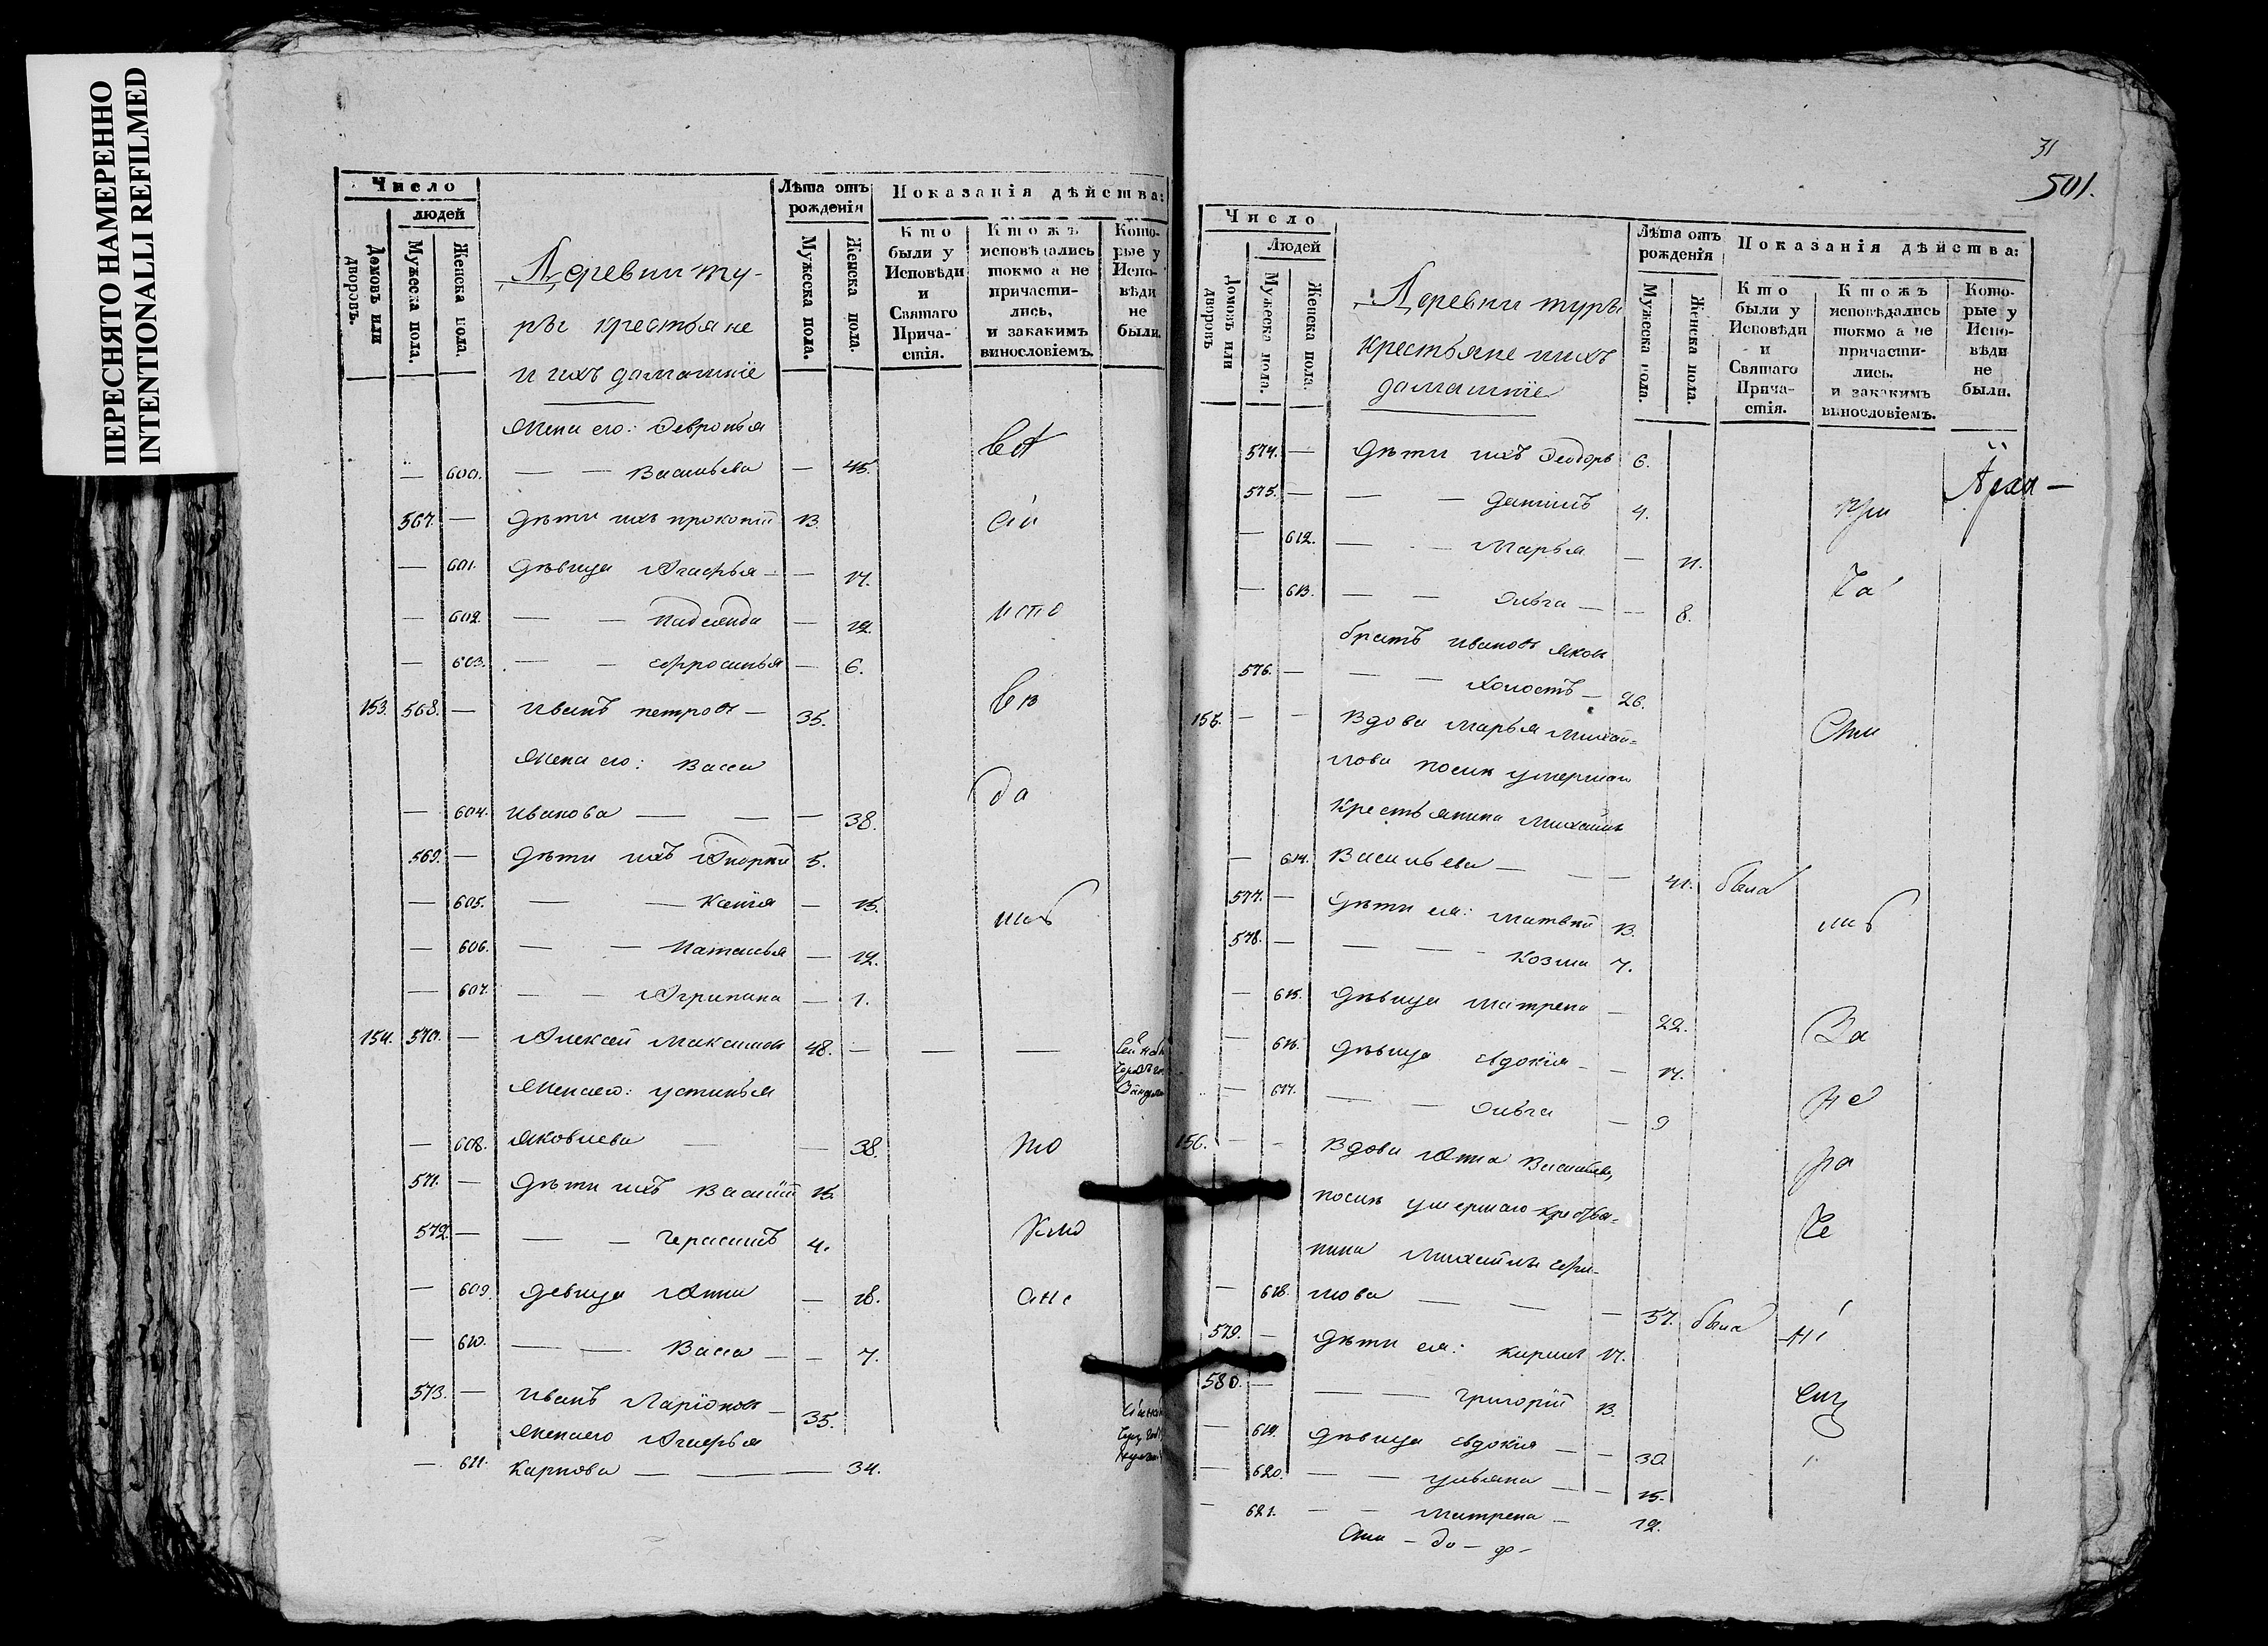 ПЕРЕСНЯТО НАМЕРЕННО
INTENTIONALLI REFILMED
Число
людей
Домовъ или дворовъ.
Мужеска пола.
Женска пола.
Деревни ту-
ры крестьяне
и ихъ домашніе
Лѣта отъ рожденія
Мужеска пола.
Женска пола.
Показанія дѣйства:
Кто были у Исповѣди и Святаго Прича- стія.
Ктожъ исповѣдались токмо а не причасти- лись, и закакимъ винословіемъ.
Кото- рые у Испо- вѣди не были.
Жена его: Февронья
— 600. — — Васильева — 45.
567. — Дѣти ихъ Прокопій 13.
— 601. Дѣвица Агафья — — 17.
— 602. — — — 12.
— 603. — — Ефросинья — 6.
153. 568. — Иванъ Петровъ — 35.
Жена его: Васса
— 604. Иванова — — — 38.
569. — Дѣти ихъ 5.
— 605. — — Ксенія — 15.
— 606. — — Наталья — 12.
— 607. — — Агрипина — 1.
154. 570. — Алексей Максимовъ 48. — — —
Жена его: Устинья
— 608. Яковлева — — 38.
571. — Дѣти ихъ Василій 15.
572. — — — Герасимъ 4.
— 609. Девица Анна — 18.
— 610. — — Васса — — 7.
573. — Иванъ Ларіоновъ — 35.
Жена его Агафья
— 611. Карпова — — — 34.
31
501.
Число
Людей
Домовъ или дворовъ
Мужеска пола.
Женска пола.
Деревни туры
крестьяне и ихъ
домашніе
Лѣта отъ рожденія
Мужеска пола.
Женска пола.
Показанія дѣйства:
Кто были у Исповѣди и Святаго Прича- стія.
Ктожъ исповѣдались токмо а не причасти- лись. и закакимъ винословіемъ.
Кото- рые у Испо- вѣди не были.
574. — Дѣти ихъ Феодоръ 6.
575. — — — Даниилъ 4.
— 612. — — Марья — 11.
— 613. — — Ольга — — 8.
братъ Ивановъ Яковъ
576. — — — холостъ — 26.
155. — — Вдова Марья Михай=
лова после умершаго
Крестьянина Михаила
— 614. Васильева — — — 41. была
577. — Дѣти ея: Матвей 13.
578. — — — Козма 7.
— 615. Дѣвица Матрена — 22.
— 616. Дѣвица Евдокія — — 17.
— 617. — — Ольга — 9
156. — — Вдова Анна Васильева,
после умершаго крестья=
нина Михаила
— 618. лова — — — 57. была
579. — Дѣти ея: Кирилъ 17.
580. — — — Григорій 13.
— 619. Дѣвица Евдокія — — 30.
— 620. — — Ульяна — — 15.
— 621. — — Матрена — 12.